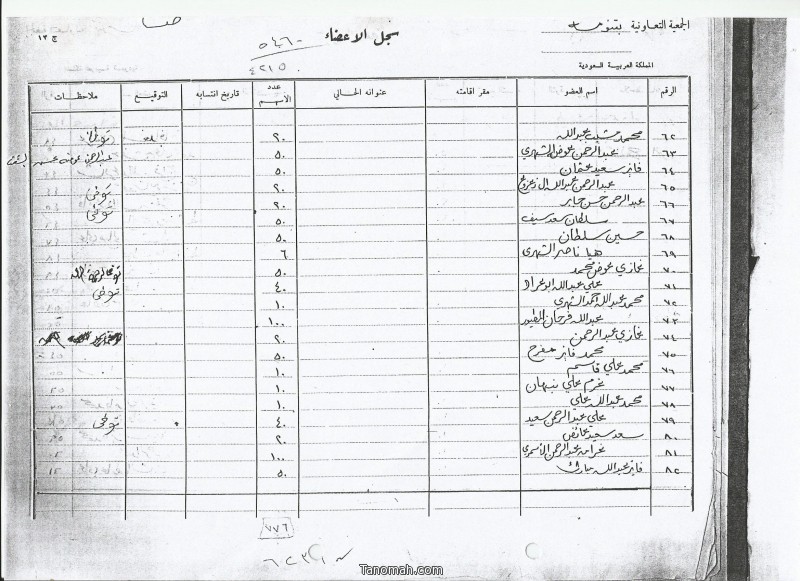 الجمعية التعاونية بتنومه
سجل الاعضاء
ج ١٣
٥٤٦٠
٤٢١٥
المملكة العربية السعودية
الرقم اسم العضو مقر اقامته عنوانه الحالي عدد الأسهم تاريخ انتسابه التوقيع ملاحظات
٦٢ محمد شبيب عبدالله ٢٠ توفى
٦٣ عبدالرحمن عوض الشهري ٥٠
٦٤ فايز سعيد عثمان ٥٠
٦٥ عبدالرحمن عبدالله ٢٠ توفى
٦٦ عبدالرحمن حسن جابر ٢٠ توفى
٦٧ سلطان سعد سيف ٥٠
٦٨ حسين سلطان ٥٠
٦٩ هيا ناصر الشهري ٦
٧٠ غازي عوض محمد ٥٠
٧١ علي عبدالله ابوعراد ٤٠ توفى
٧٢ محمد عبدالله احمد الشهري ١٠
٧٣ عبدالله فرحان ١٠٠
٧٤ غازي عبدالرحمن ٢٠
٧٥ محمد فايز مفرح ٥٠
٧٦ محمد علي قاسم ١٠
٧٧ محرم علي نبهان ١٠
٧٨ محمد عبدالله علي ١٠
٧٩ علي عبدالرحمن سعيد ٤٠ توفى
٨٠ سعد سعيد عائض ٢٠
٨١ غرامه عبدالرحمن الأسمري ١٠٠
٨٢ فايز عبدالله مبارك ٥٠
٧٧٦
Tanomah.com